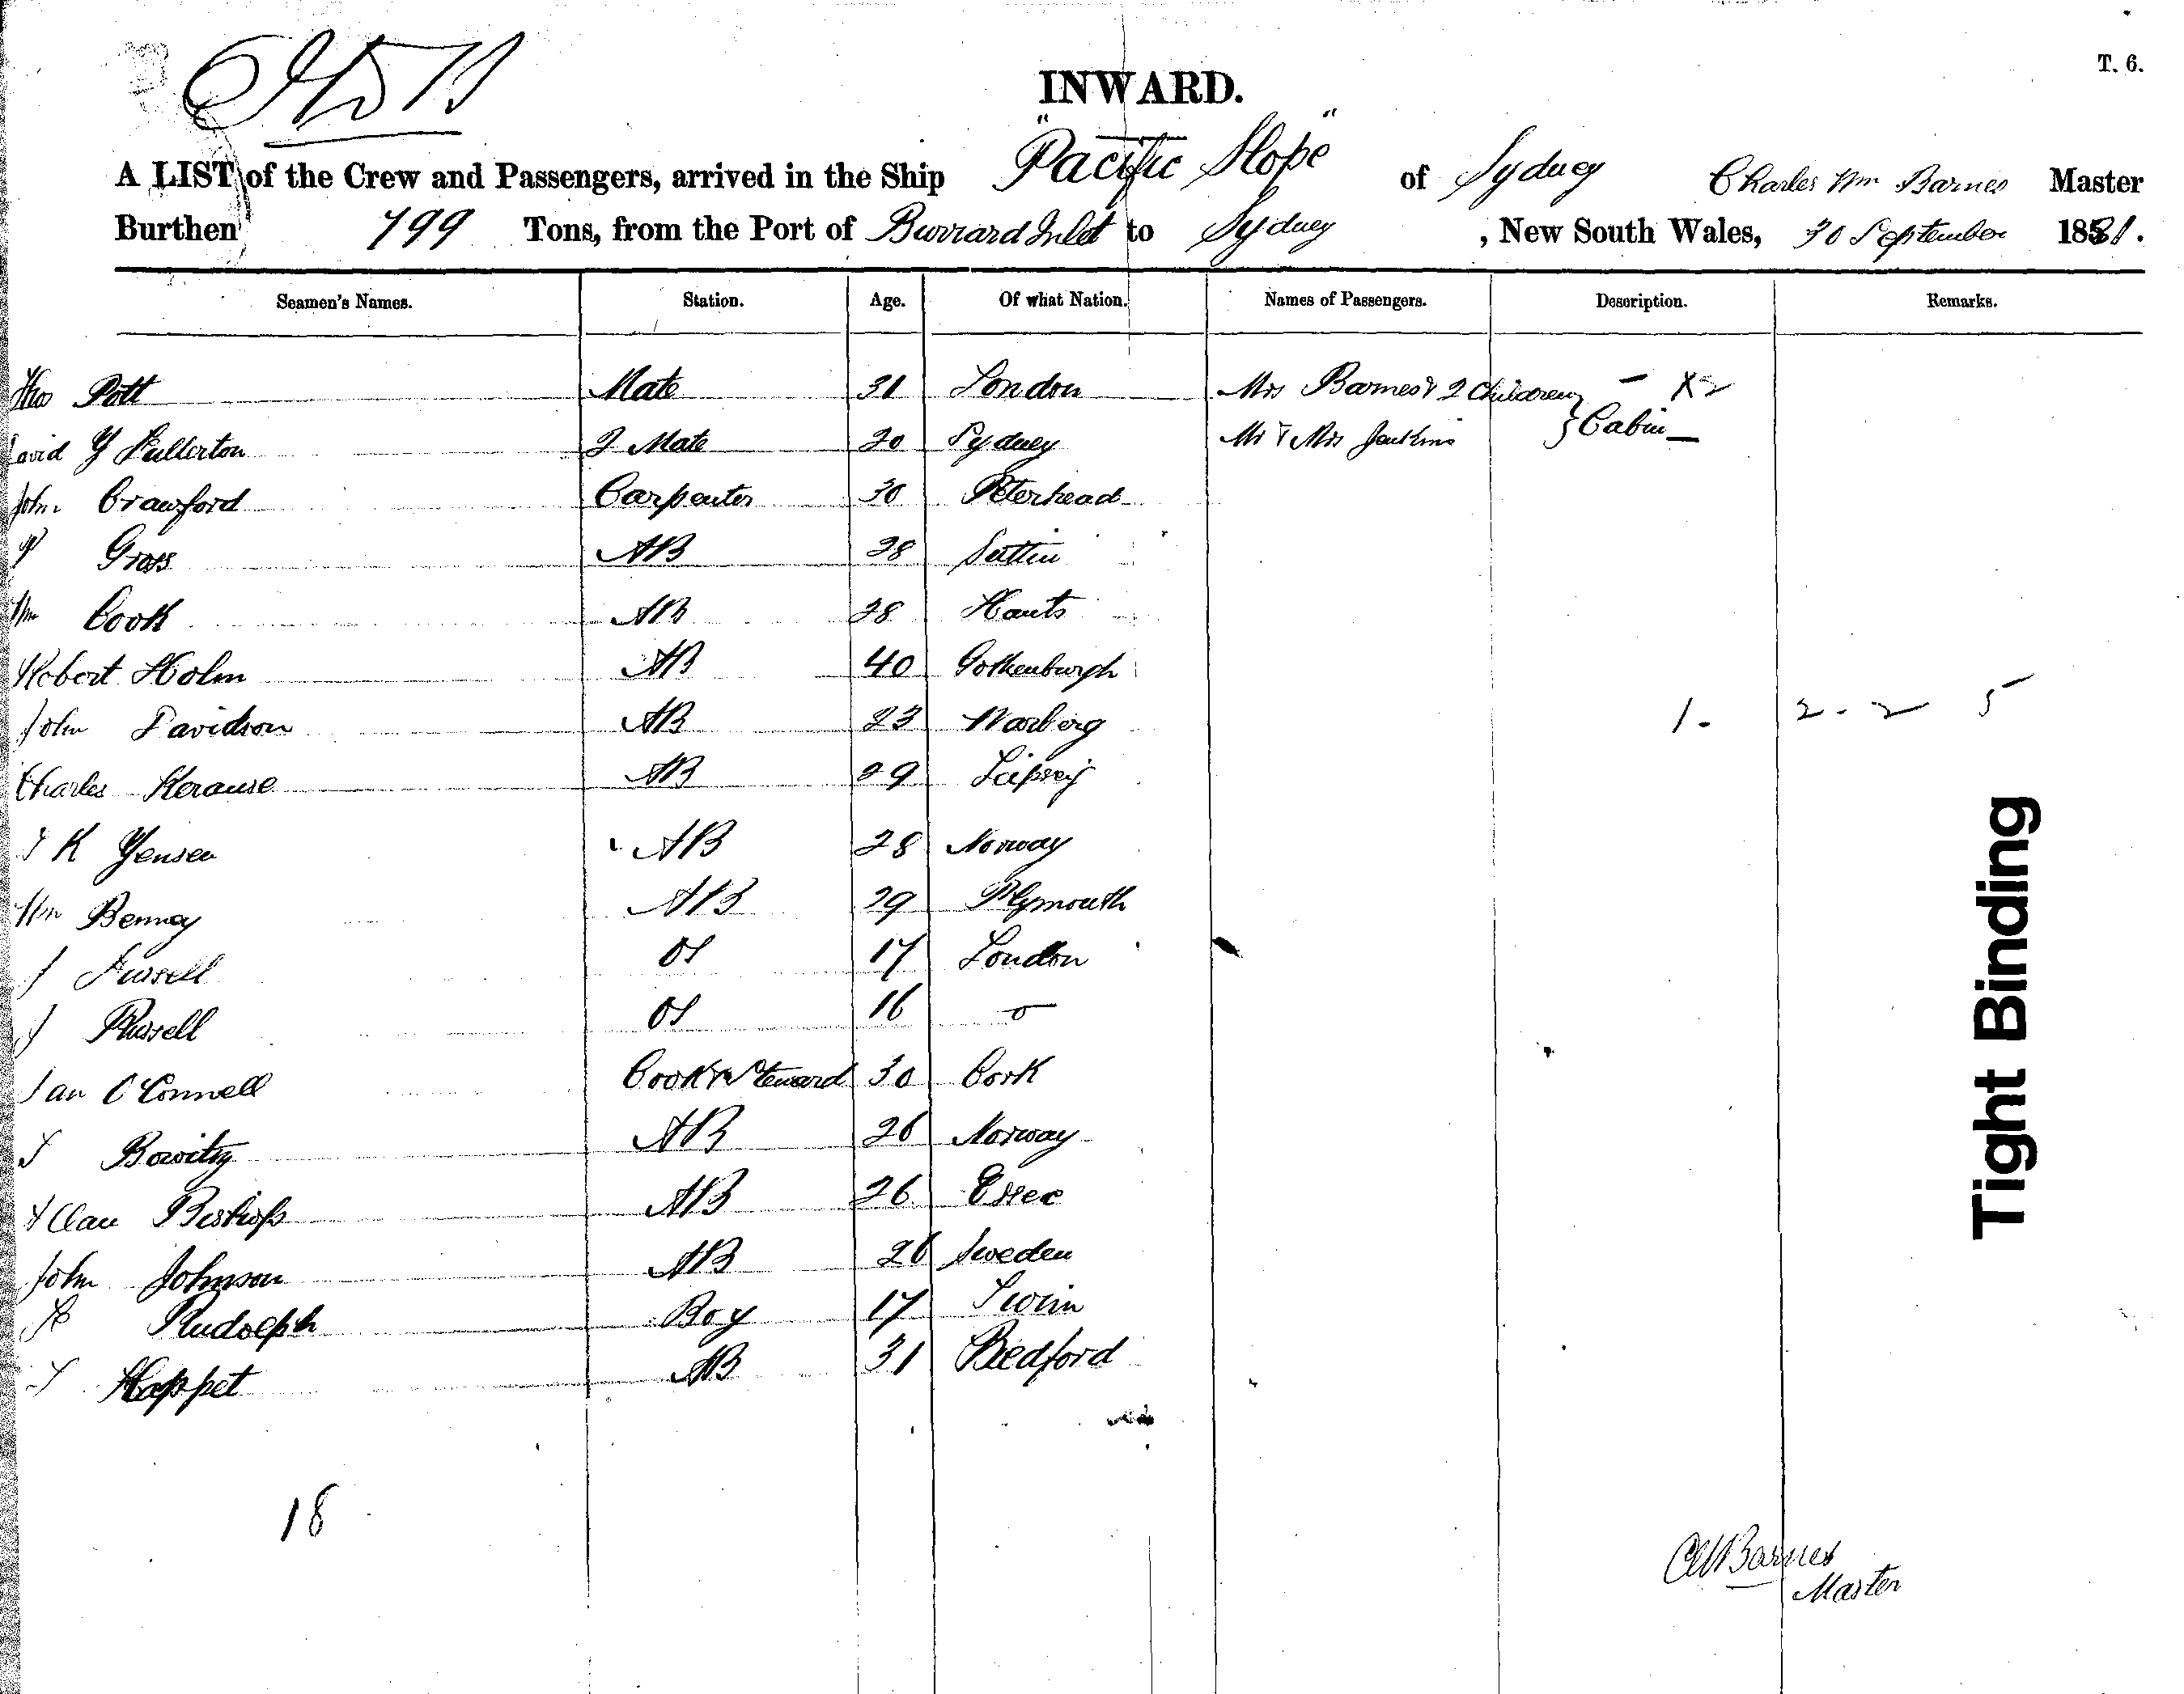 T. 6.
INWARD.
A LIST of the Crew and Passengers, arrived in the Ship "Pacific Slope" of Sydney Charles Wm Barnes Master
Burthen 799 Tons, from the Port of Burrard Inlet to Sydney, New South Wales, 30 September 1881.
Seamen's Names. Station. Age. Of what Nation. Names of Passengers. Description. Remarks.
Thos Pott Mate 31 London Mrs Barnes & 2 Children –
David Y Fullerton 2 Mate 20 Sydney Mr & Mrs Jenkins } Cabin
John Crawford Carpenter 30 Peterhead
Gross AB 28 Settin
Wm Cook AB 28 Hants
Robert Holm AB 40 Gothenburgh
John Davidson AB 23 Warberg 1. 2 - 2 5
Charles Kerause AB 29 Lipseij
K Yensen AB 28 Norway
Wm Benney AB 29 Plymouth
J Fursell OS 17 London
J Russell OS 16 o
Dan O'Connell Cook & Steward 30 Cork
Bowitzy AB 26 Norway
Allan Bishop AB 26 Essec
John Johnson AB 26 Sweden
Rudolph Boy 17
Happet AB 31 Bedford
18
CW Barnes
Master
Tight Binding